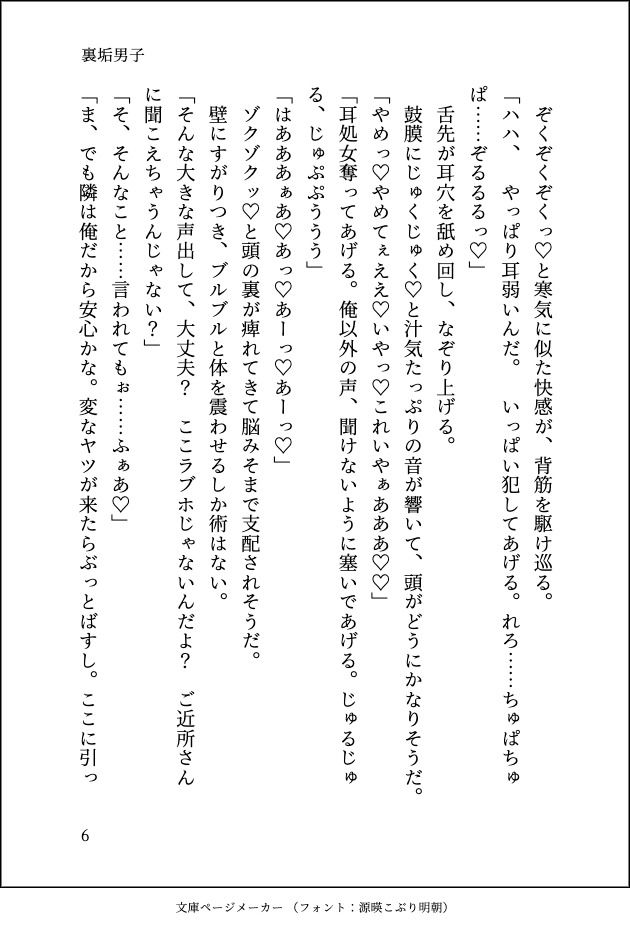 裏垢男子
　ぞくぞくぞくっ♡と寒気に似た快感が、背筋を駆け巡る。
「ハハ、　やっぱり耳弱いんだ。　いっぱい犯してあげる。れろ……ちゅぱちゅ
ぱ……ぞるるるっ♡」
　舌先が耳穴を舐め回し、なぞり上げる。
　鼓膜にじゅくじゅく♡と汁気たっぷりの音が響いて、頭がどうにかなりそうだ。
「やめっ♡やめてぇええ♡いやっ♡これいやぁあああ♡♡」
「耳処女奪ってあげる。俺以外の声、聞けないように塞いであげる。じゅるじゅ
る、じゅぷぷううう」
「はあああぁあ♡あっ♡あーっ♡あーっ♡」
　ゾクゾクッ♡と頭の裏が痺れてきて脳みそまで支配されそうだ。
　壁にすがりつき、ブルブルと体を震わせるしか術はない。
「そんな大きな声出して、大丈夫？　ここラブホじゃないんだよ？　ご近所さん
に聞こえちゃうんじゃない？」
「そ、そんなこと……言われてもぉ……ふぁあ♡」
「ま、でも隣は俺だから安心かな。変なヤツが来たらぶっとばすし。ここに引っ
6
文庫ページメーカー （フォント：源暎こぶり明朝）